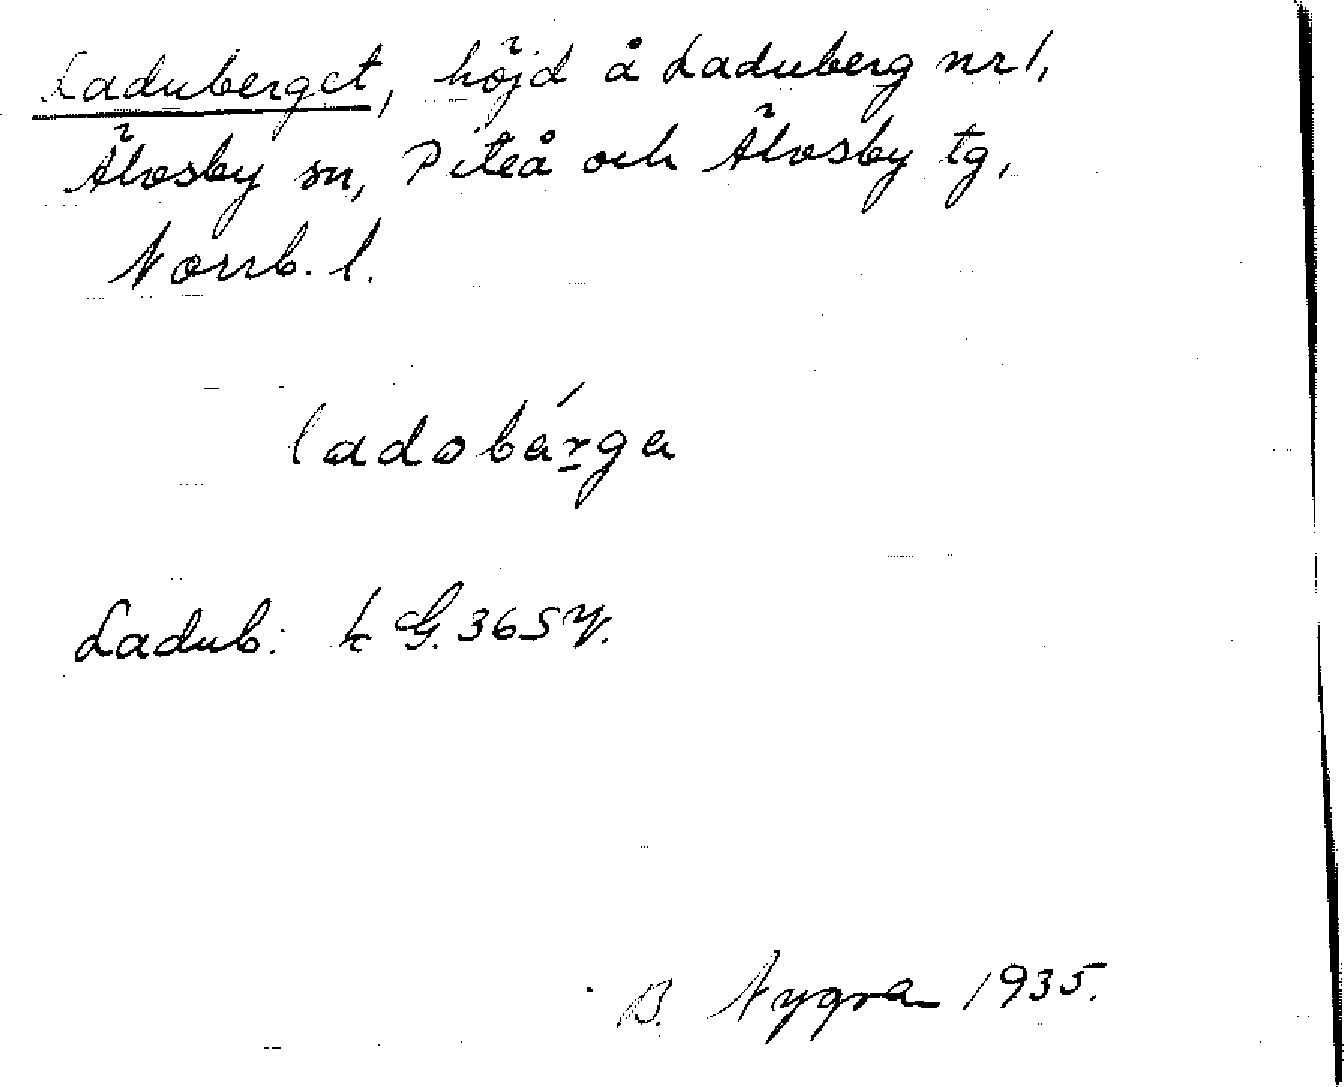 Laduberget, höjd å Laduberg nr 1,
Älvsby sn, Piteå och Älvsby tg,
Norrb. l.
ladobárga
Ladub. k G. 365 y.
B. Nygren 1935.